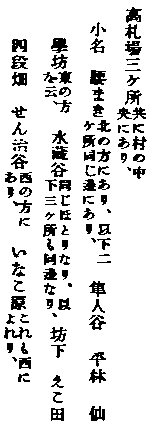 高札場三ケ所共に村の中央にあり、
小名 腰まき北の方にあり、以下二ケ所同じ邊にあり、 隼人谷 平林 仙
學坊東の方を云、 水藏谷同じほとりなり、以下三ケ所も同邊なり、 坊下 えこ田
四段畑 せん治谷西の方にあり、 いなこ原これも西によれり、